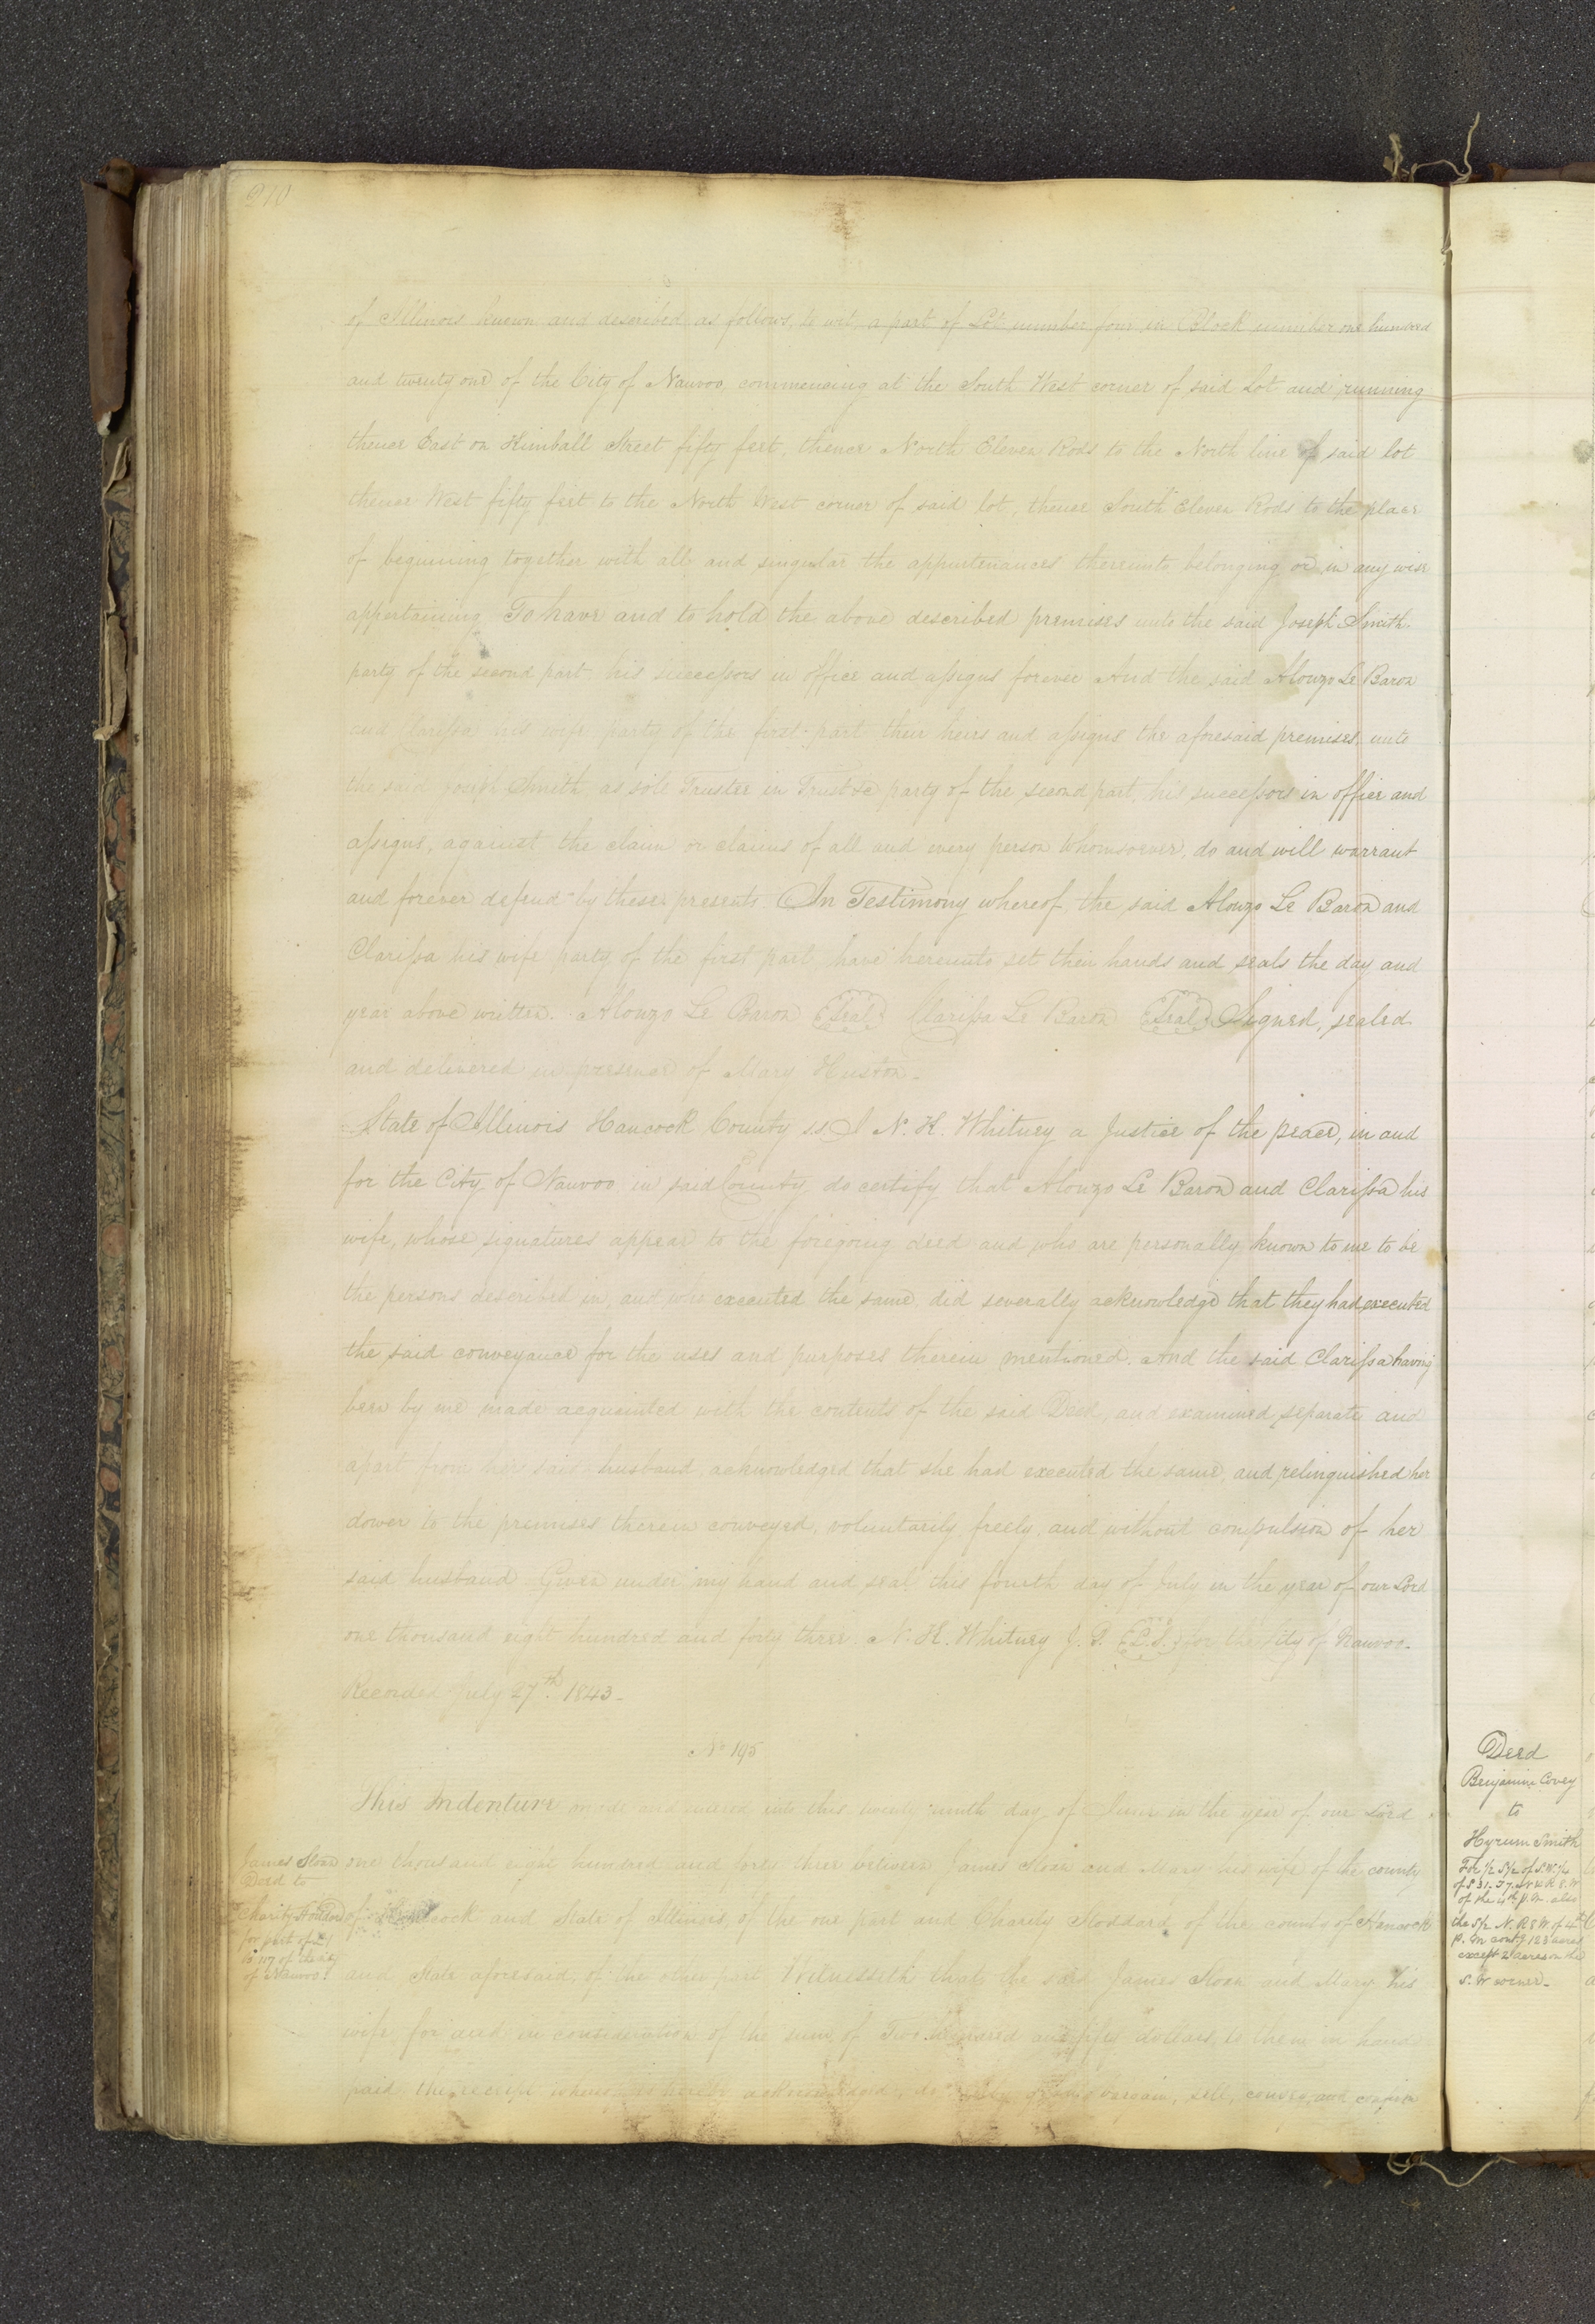 210
of Illinois known and described as follows, to wit, a part of Lot number four in Block number one hundred
and twenty one of the City of Nauvoo, commencing at the South West corner of said Lot and running
thence East on Kimball Street fifty feet, thence North Eleven Rods to the North line of said lot
thence West fifty feet to the North West corner of said lot, thence South Eleven Rods to the place
of beginning together with all and singular the appurtenances thereunto belonging or in any wise
appertaining. To have and to hold the above described premises unto the said Joseph Smith
party of the second part his successors in office and assigns forever And the said Alonzo Le Baron
and Clarissa his wife party of the first part their heirs and assigns the aforesaid premises unto
the said Joseph Smith as sole Trustee in Trust &c party of the second part, his successors in office and
assigns, against the claim or claims of all and every person Whomsoever, do and will warrant
and forever defend by these presents. In Testimony whereof, the said Alonzo Le Baron and
Clarissa his wife party of the first part have hereunto set their hands and seals the day and
year above written. Alonzo Le Baron {Seal} Clarissa Le Baron {Seal} Signed, sealed
and delivered in presence of Mary Huston.
State of Illinois Hancock County s.s I N. K. Whitney a Justice of the peace, in and
for the City of Nauvoo in said County do certify that Alonzo Le Baron and Clarissa his
wife, whose signatures appear to the foregoing deed and who are personally known to me to be
the persons described in, and who executed the same, did severally acknowledge that they had executed
the said conveyance for the uses and purposes therein mentioned. And the said Clarissa having
been by me made acquainted with the contents of the said Deed, and examined separate and
apart from her said husband acknowledged that she had executed the same, and relinquished her
dower to the premises therein conveyed, voluntarily freely, and without conpulsion of her
said husband Given under my hand and seal this fourth day of July in the year of our Lord
one thousand eight hundred and forty three. N. K. Whitney J. P. {L.S.} for the City of Nauvoo.
Recorded July 27th. 1843.
No 195
This Indenture made and entered into this twenty ninth day of June in the year of our Lord
one thousand eight hundred and forty three between James Sloan and Mary his wife of the county
of Hancock and State of Illinois, of the one part and Charity Stoddard of the county of Hancock
and State aforesaid, of the other part Witnesseth that the said James Sloan and Mary his
wife, for and in consideration of the sum of Two hundred and fifty dollars, to them in hand
paid, the receipt whereof is hereby acknowledged, do bargain, sell, convey, and confirm
James Sloan
Deed to
Charity Stoddard
for part of
117 of the City
of Nauvoo
Deed
Benjamin Covey
to
Hyrum Smith
For 1/2 S1/2 of S.W. 1/4
of S 31. T 7. N R 8. W
of the 4th P. M. also
the S1/2 N. R 8 W. of 4th
P. M cont'g 123 acres
except 2 acres on the
S. W corner.